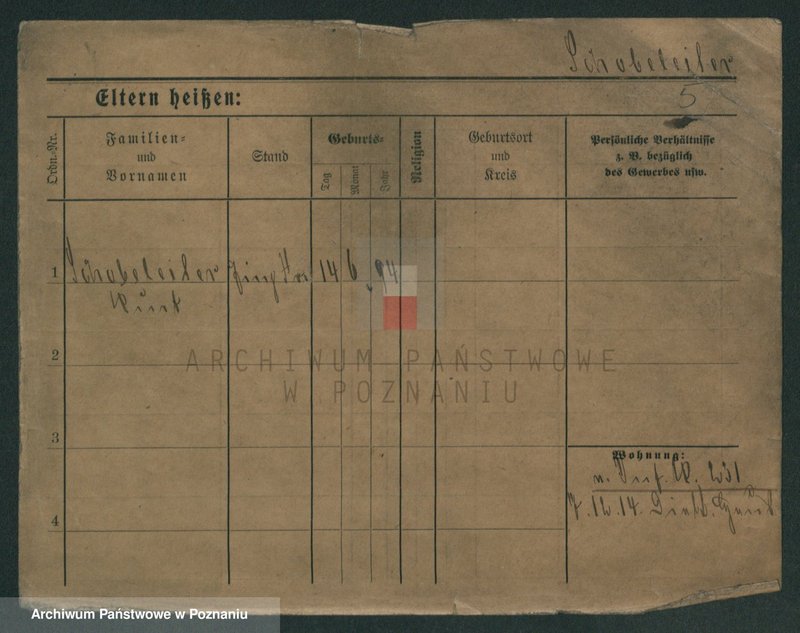 Schobeleiler
5
Eltern heißen:
Ordn.-Nr.
Familien-
und
Vornamen
Stand
Geburts-
Tag
Monat
Jahr
Religion
Geburtsort
und
Kreis
Persönliche Verhältnisse
z. B. bezüglich
des Gewerbes usw.
1
Schobeleiler
14 6. 94
Kurt
2
ARCHIWUM PAŃSTWOWE
W POZNANIU
3
Wohnung:
4
7.12.14.
Archiwum Państwowe w Poznaniu